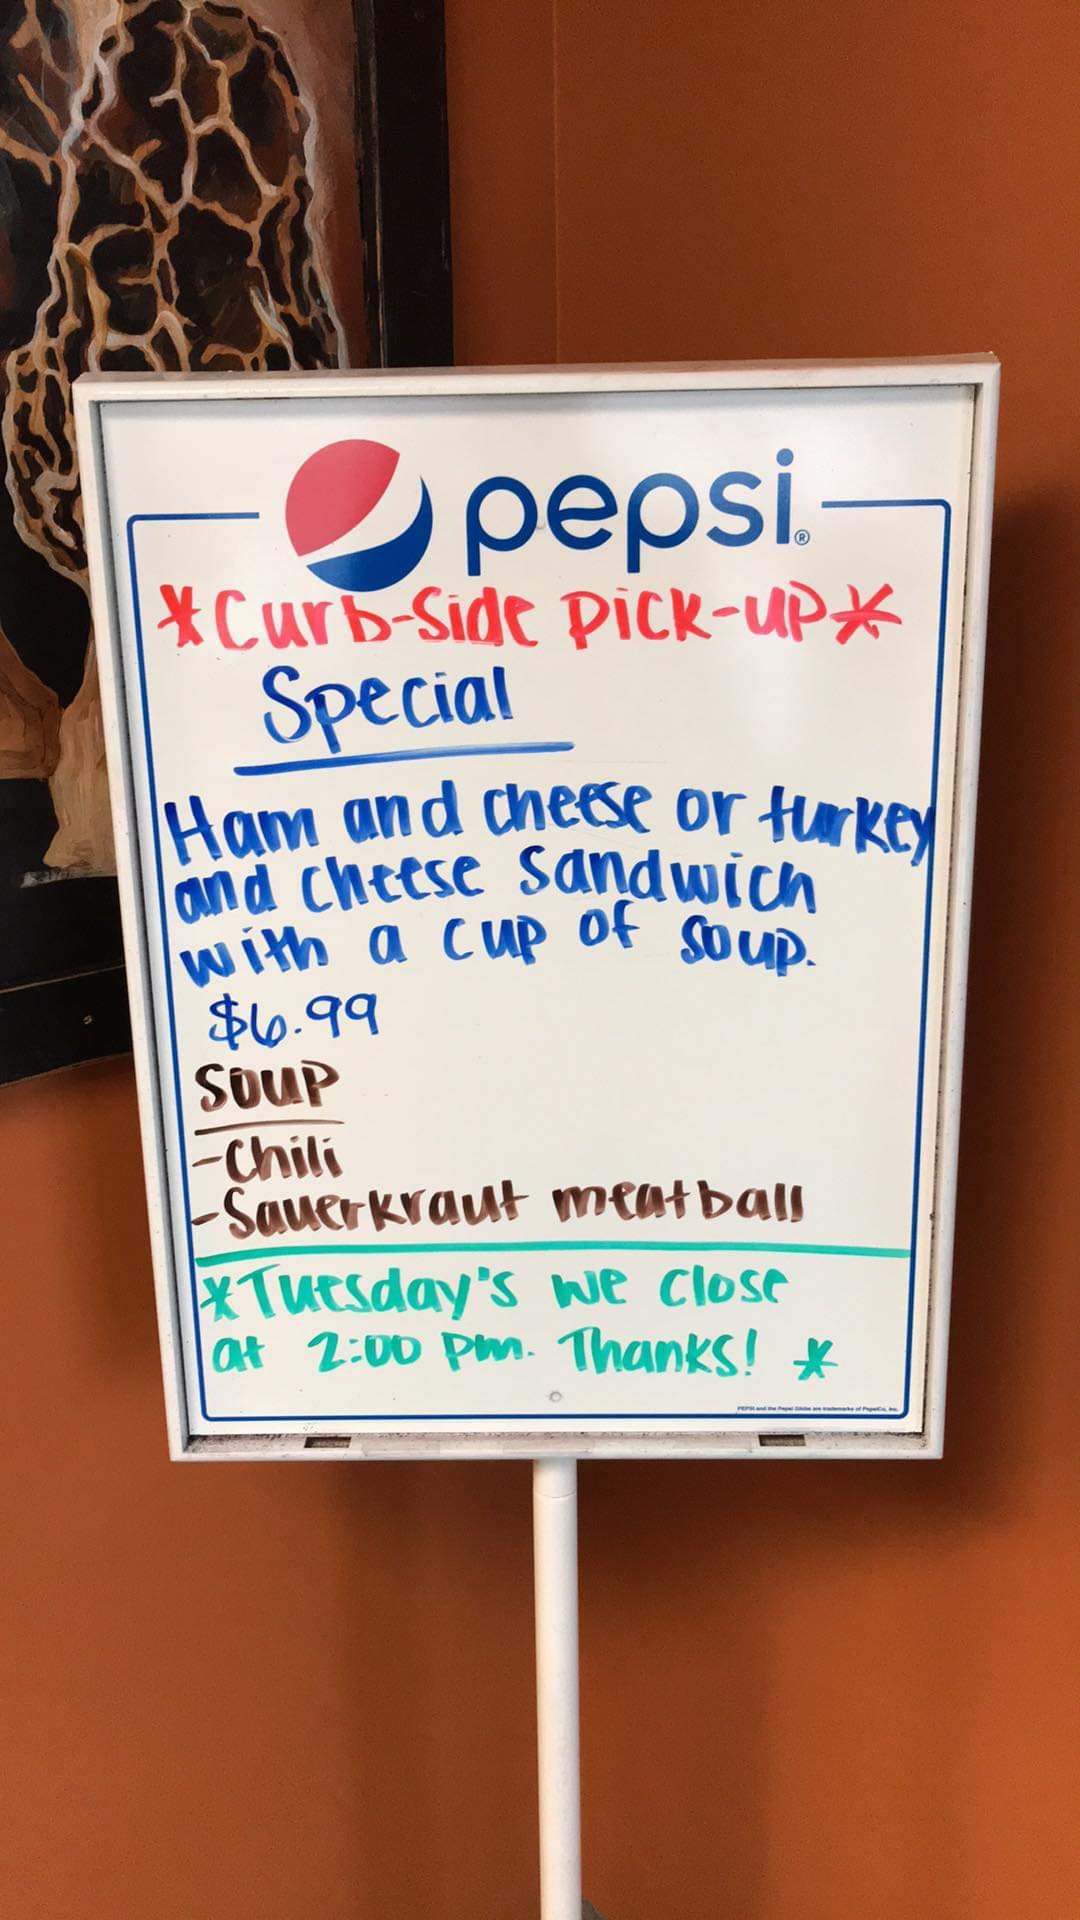 pepsi®
*Curb-Side Pick-up*
Special
Ham and cheese or turkey
and cheese sandwich
with a cup of soup.
$6.99
Soup
-Chili
-Sauerkraut meatball
*Tuesday's we close
at 2:00 pm. Thanks! *
PEPSI and the Pepsi Globe are trademarks of PepsiCo, Inc.